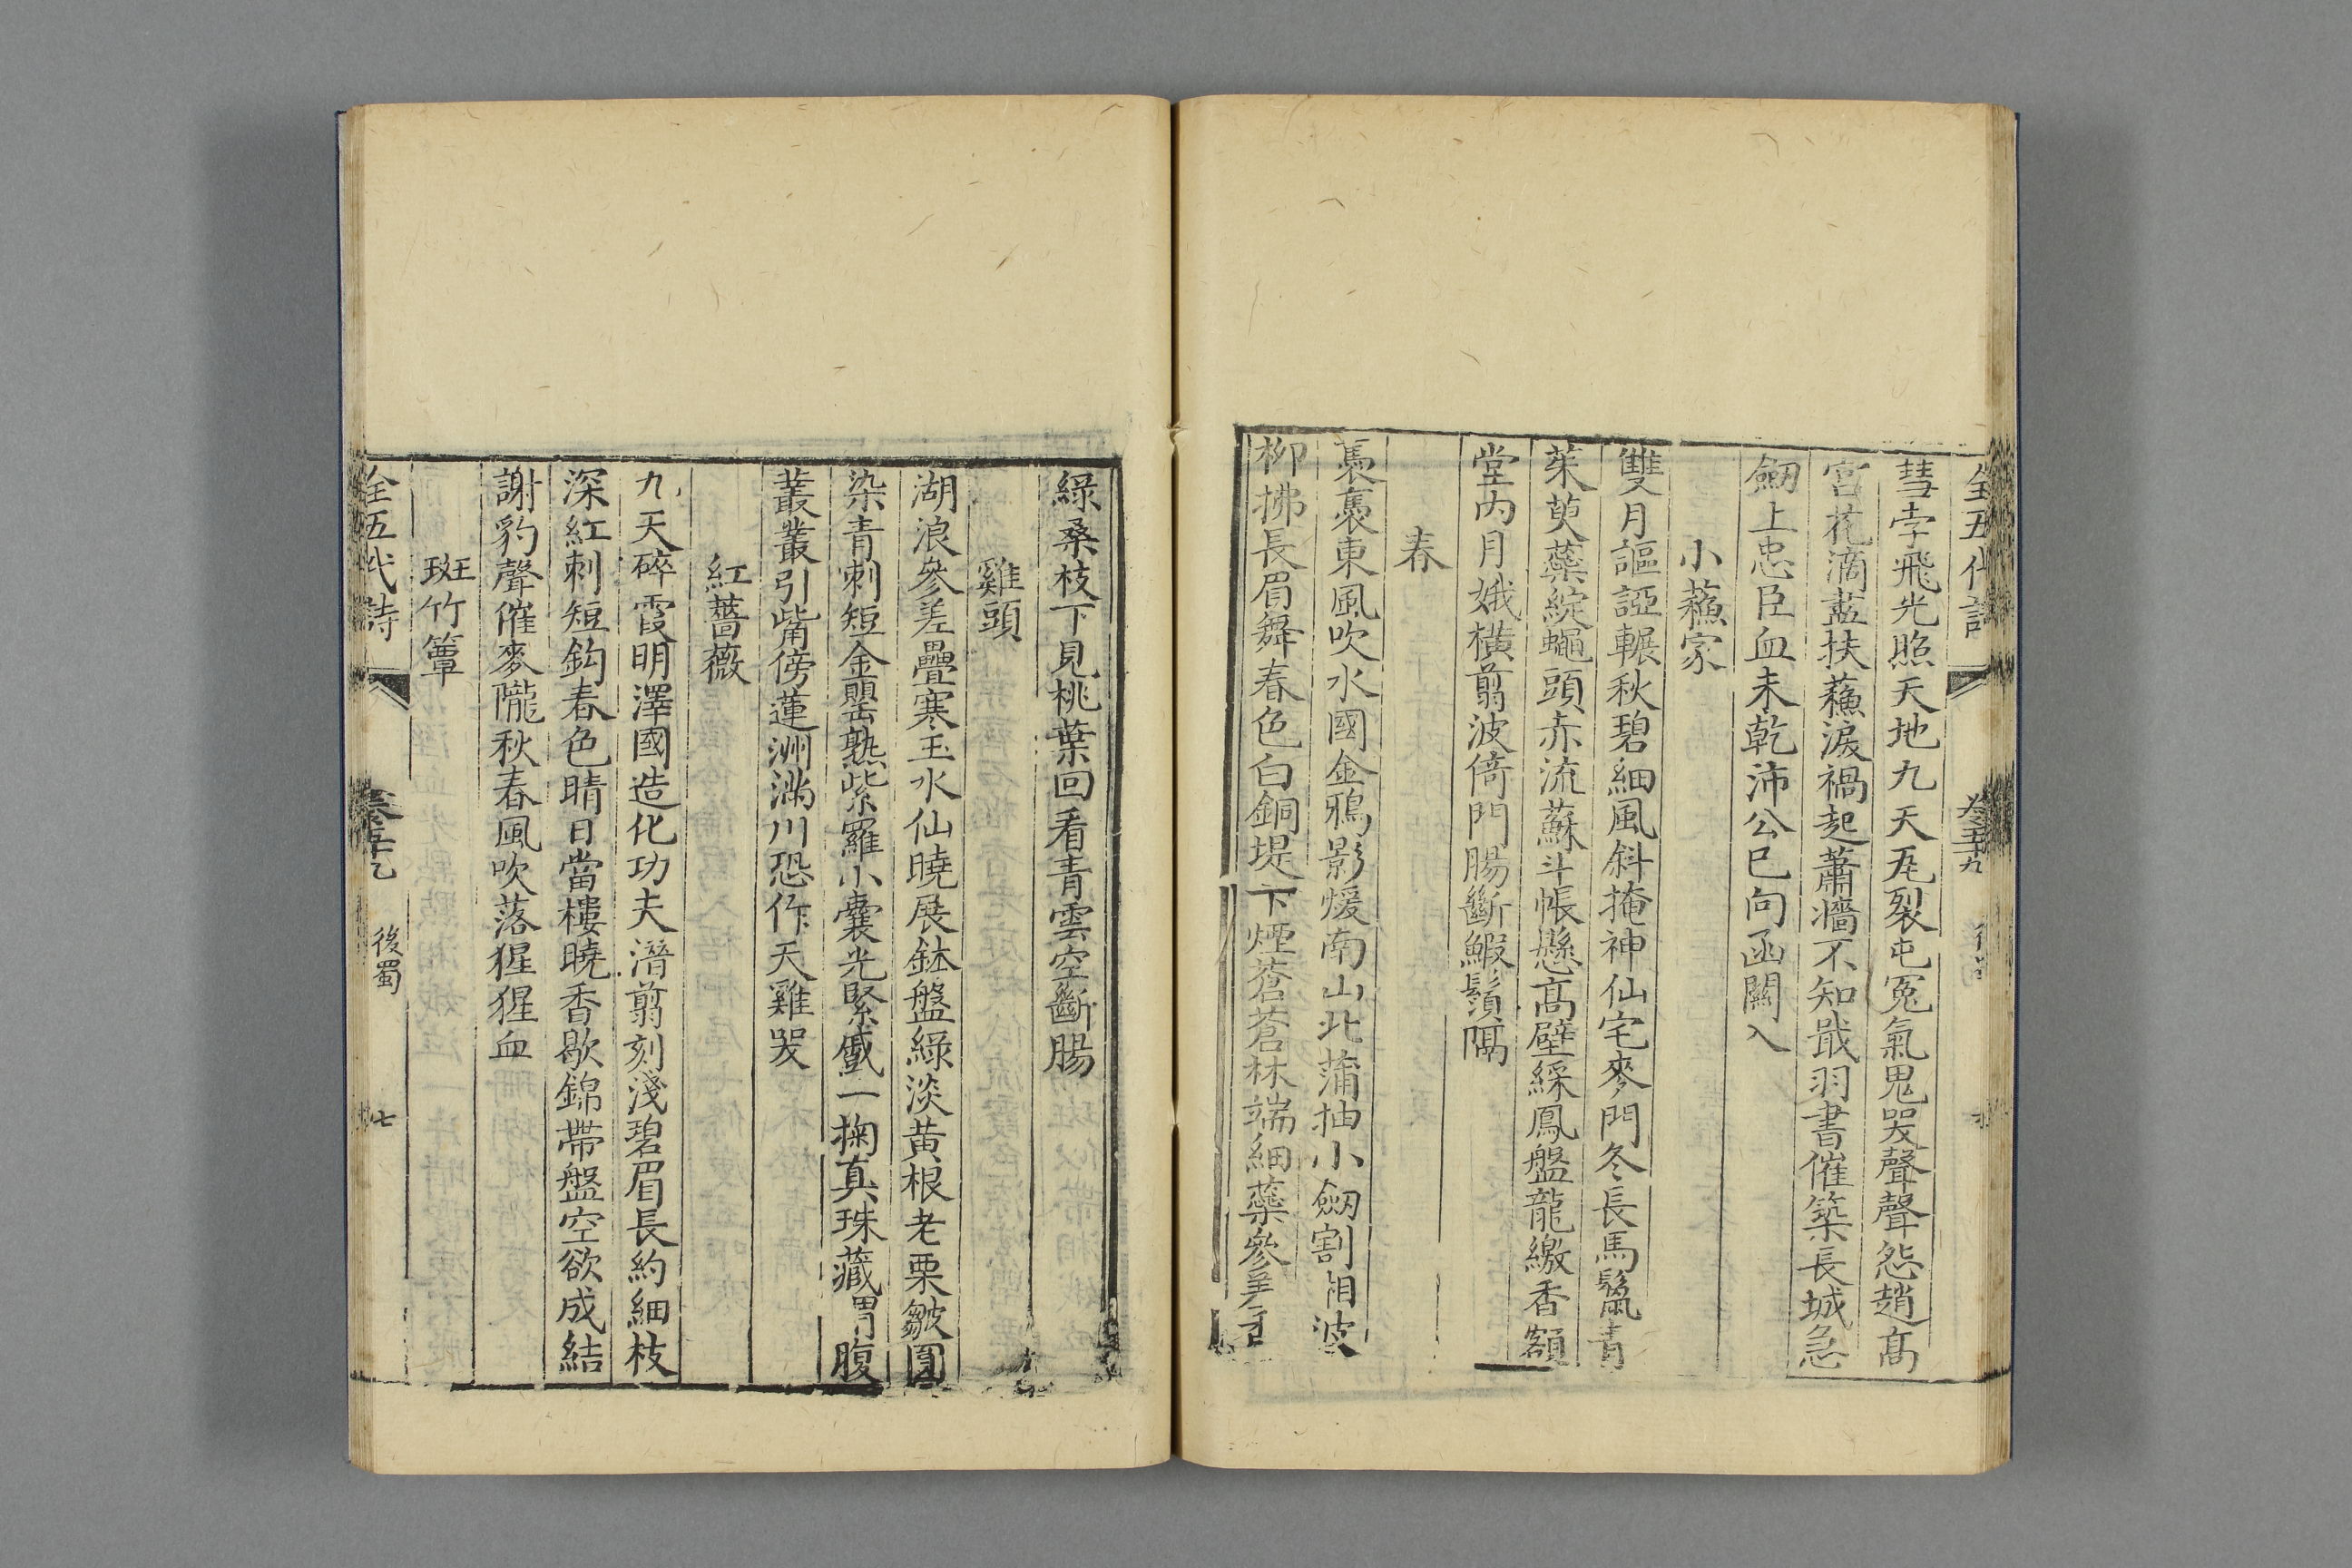 全五代詩
彗孛飛光照天地九天瓦裂屯冤氣鬼哭聲聲怨趙髙
宮花滴盡扶蘓淚禍起蕭牆不知戢羽書催築長城急
劒上忠臣血未乾沛公已向函關入
小蘓家
雙月謳啞輾秋碧細風斜掩神仙宅麥門冬長馬鬣青
茱萸蘂綻蠅頭赤流蘇斗帳懸髙壁綵鳳盤龍繳香額
堂內月娥橫翦波倚門腸斷鰕鬚隔
春
裊裊東風吹水國金鴉影煖南山北蒲抽小劒割湘波
柳拂長眉舞春色白銅堤下煙蒼蒼林端細蘂參差香
綠桑枝下見桃葉回看青雲空斷腸
雞頭
湖浪參差疊寒玉水仙曉展鉢盤綠淡黃根老栗皺圓
染青刺短金罌熟紫羅小囊光緊蹙一掬真珠藏胃腹
叢叢引觜傍蓮洲滿川恐作天雞哭
紅薔薇
九天碎霞明澤國造化功夫潛翦刻淺碧眉長約細枝
深紅刺短鈎春色晴日當樓曉香歇錦帶盤空欲成結
謝豹聲催麥隴秋春風吹落猩猩血
斑竹簟
全五代詩
卷五十九
後蜀
七